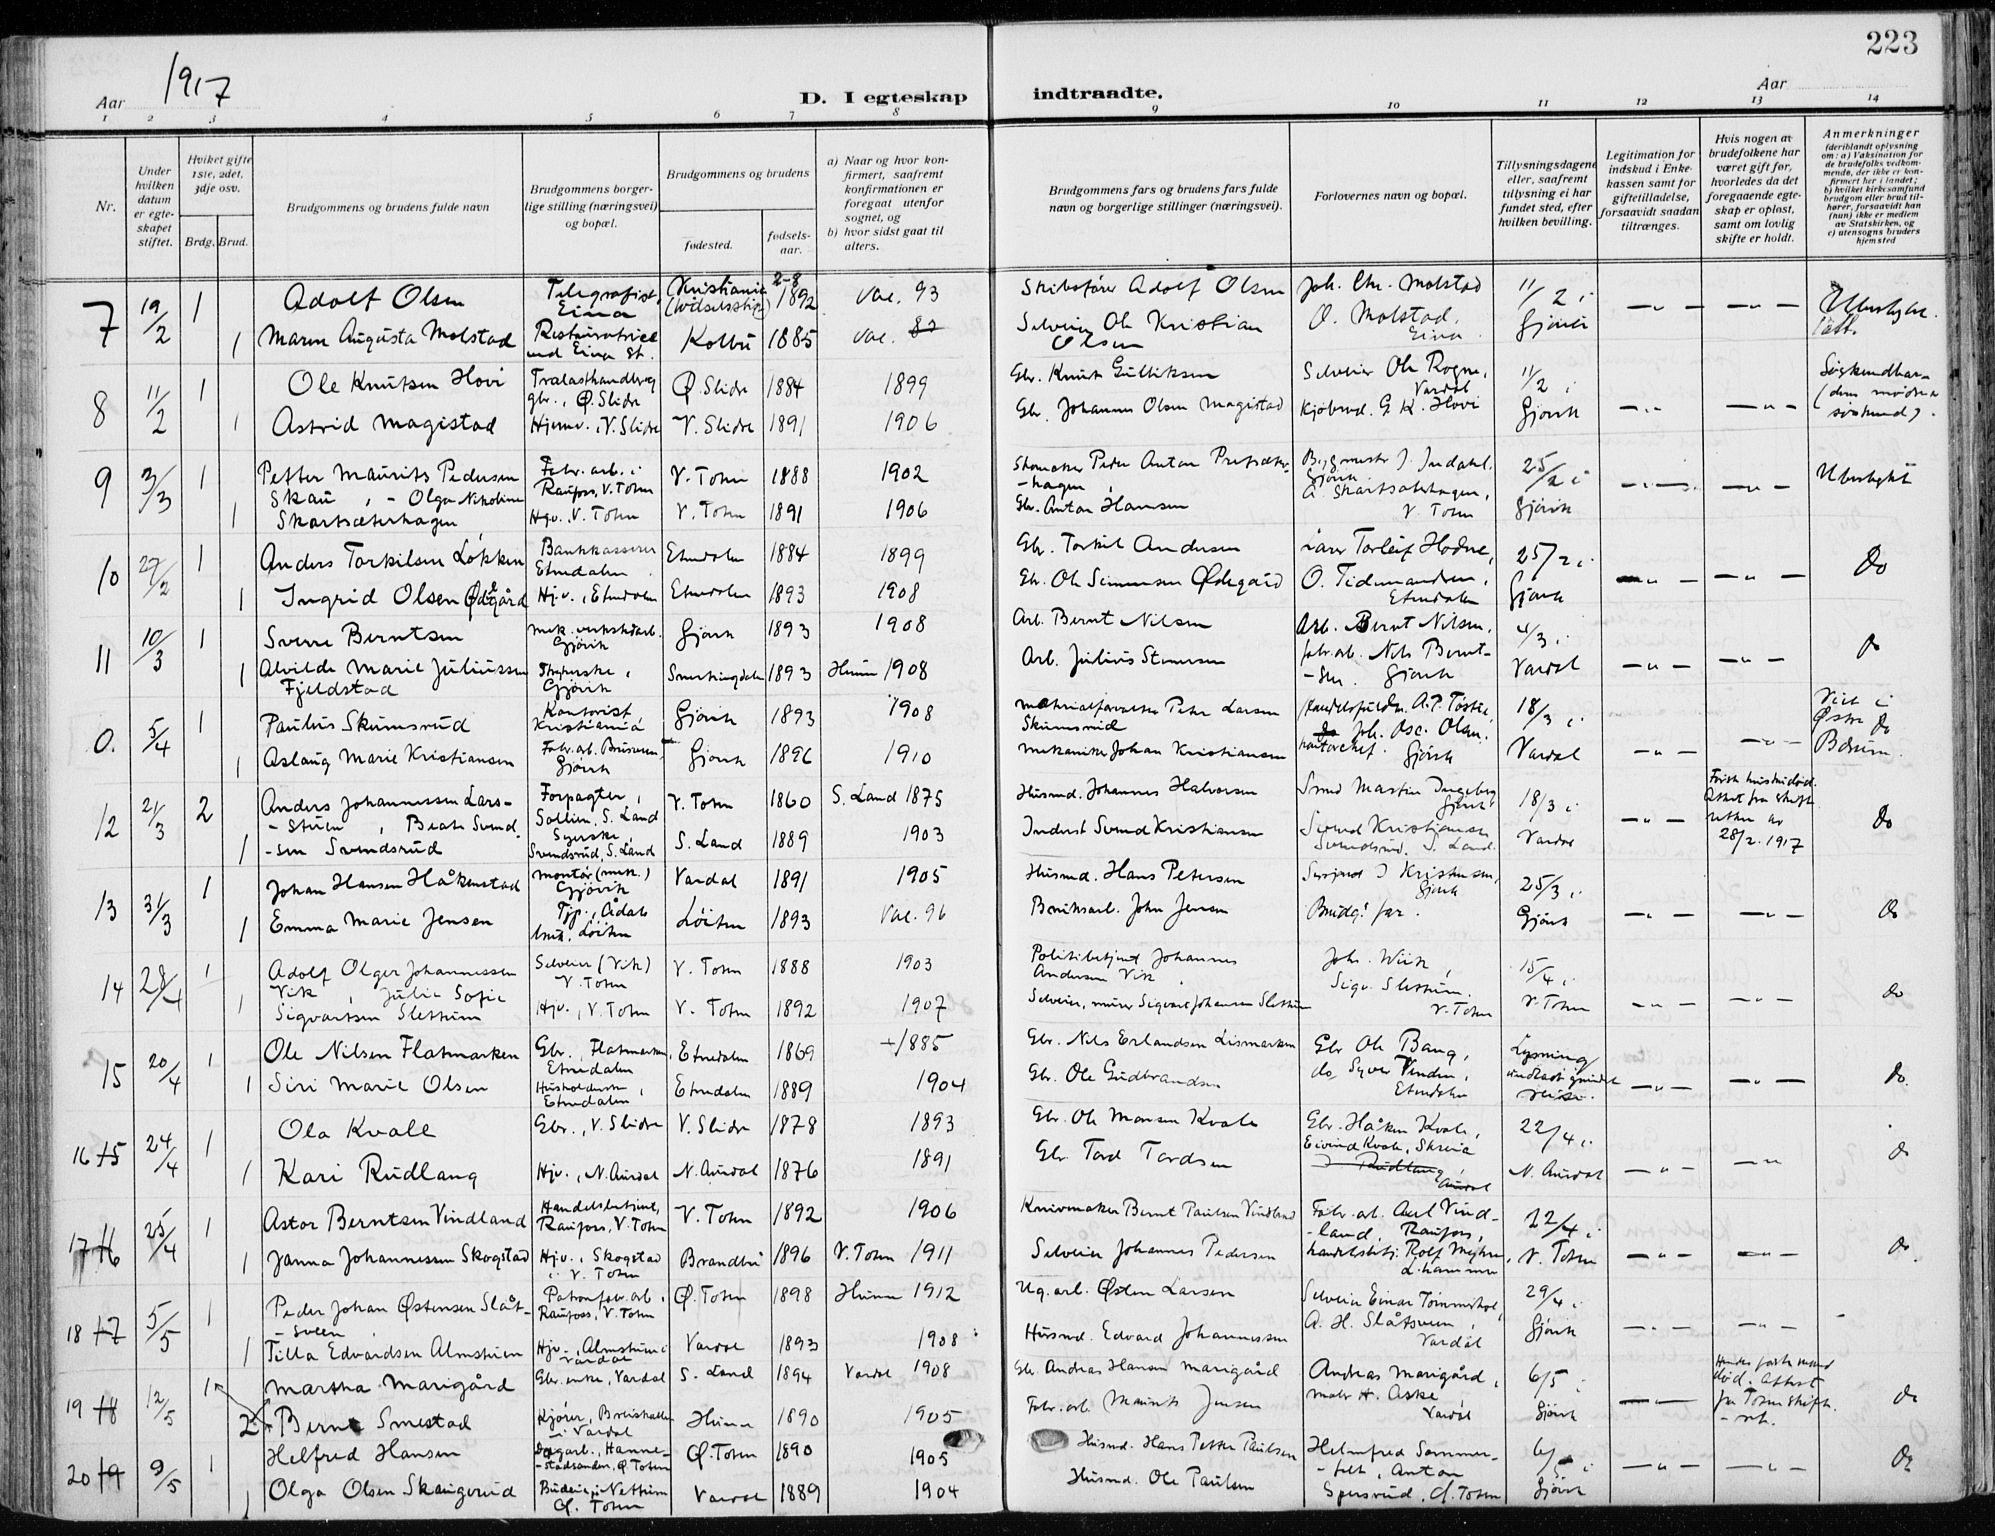 223
Aar 1917
D. I egteskap indtraadte.
Aar
1 2 3 4 5 6 7 8 9 10 11 12 13 14
Nr.
Under hvilken datum er egteskapet stiftet.
Hviket gifte 1ste, 2det, 3dje osv.
Brdg. Brud.
Brudgommens og brudens fulde navn
Brudgommens borgerlige stilling (næringsvei) og bopæl.
Brudgommens og brudens
fødested.
fødselsaar.
a) Naar og hvor konfirmert, saafremt konfirmationen er foregaat utenfor sognet, og
b) hvor sidst gaat til alters.
Brudgommens fars og brudens fars fulde navn og borgerlige stillinger (næringsvei).
Forlovernes navn og bopæl.
Tillysningsdagene eller, saafremt tillysning ei har fundet sted, efter hvilken bevilling.
Legitimation for indskud i Enkekassen samt for giftetilladelse, forsaavidt saadan tiltrænges.
Hvis nogen av brudefolkene har været gift før, hvorledes da det foregaaende egteskap er opløst, samt om lovlig skifte er holdt.
Anmerkninger
(deriblandt oplysning om: a) Vaksination for de brudefolks vedkommende, der ikke er konfirmert her i landet; b) hvilket kirkesamfund brudgom eller brud tilhører, forsaavidt han (hun) ikke er medlem av Statskirken, og c) utensogns bruders hjemsted
7 19/2 1 Adolf Olsen Telegrafist, Eina Kristiania 2-8 1892 Vac. 93 Skibsfører Adolf Olsen Joh. Chr. Molstad 11/2 i
1 Maren Augusta Molstad Restauratrice ved Eina St. Kolbu 1885 Vac. 87 Selveier Ole Kristian Olsen O. Molstad, Eina Gjøvik
8 11/2 1 Ole Knutsen Hovi Trælasthandler og gbr., Ø. Slidre Ø. Slidre 1884 1899 Gbr. Knut Gulliksen Selveier Ole Rogne, Vardal 11/2 i
1 Astrid Magistad Hjemv., V. Slidre V. Slidre 1891 1906 Gbr. Johannes Olsen Magistad Kjøbmd. G. K. Hovi Gjøvik
9 3/3 1 Petter Maurits Pedersen Fabr. arb. i Raufoss, V. Toten V. Toten 1888 1902 Skomaker Peder Anton 25/2 i Ubeslegtet
Skau, - Olga Nikoline
1 Skartsæterhagen Hjv., V. Toten V. Toten 1891 1906 Gbr. Anton Hansen A. Skartsæterhagen, V. Toten Gjøvik
10 27/2 1 Anders Torkilsen Løkken Bankkasserer Etnedalen Etnedalen 1884 1899 Gbr. Torkil Andersen Lærer Torleif Hodne, 25/2 i do
1 Ingrid Olsen Ødegård Hjv., Etnedalen Etnedalen 1893 1908 Gbr. Ole Simensen Ødegård O. Tidemandsen, Etnedalen Gjøvik
11 10/3 1 Sverre Berntsen mek. verkstedarb. Gjøvik Gjøvik 1893 1908 Arb. Bernt Nilsen Arb. Bernt Nilsen, 4/3 i do
1 Alvilde Marie Juliussen Fjeldstad Gjøvik 1893 Hunn 1908 Arb. Julius Stenersen fabr. arb. Nils Berntsen. Gjøvik Vardal
0. 5/4 1 Paulus Skumsrud Kontorist Kristiania Gjøvik 1893 1908 Materialforvalter Peter Larsen Skumsrud 18/3 i Viet i Østre do Bærum.
1 Aslaug Marie Kristiansen Gjøvik Gjøvik 1896 1910 Mekaniker Johan Kristiansen Joh. Osc. Olsen. kontorchef. Gjøvik Vardal
12 21/3 2 Anders Johannessen Lars- Forpagter, Sollien, S. Land V. Toten 1860 S. Land 1875 Husmd. Johannes Halvorsen Smed Martin Ingeberg Gjøvik 18/3 i
-stuen, Beate Svend-
1 -sen Svendsrud Syerske, Svendsrud, S. Land S. Land 1889 1903 Inderst Svend Kristiansen Svend Kristiansen Svendsrud. S. Land. Vardal 28/2. 1917 do
13 31/3 1 Johan Hansen Håkenstad Montør (mek.) Gjøvik Vardal 1891 1905 Husmd. Hans Petersen J Kristensen, Gjøvik 25/3 i
1 Emma Marie Jensen Tjp., Ådals bruk. Løiten Løiten 1893 Vac. 96 Bruksarb. John Jensen Brudg! far. Gjøvik do
14 28/4 1 Adolf Olger Johannessen Selveier (Vik) V. Toten V. Toten 1888 1903 Politibetjent Johannes Andersen Vik Joh. Wiik, 15/4 i
Vik, Julie Sofie
1 Sigvartsen Slettum Hjv., V. Toten V. Toten 1892 1907 Selveier, murer Sigvart Johansen Slettum Sigv. Slettum. V. Toten V. Toten do
15 20/4 1 Ole Nilsen Flatmarken Gbr., Flatmarken, Etnedalen Etnedalen 1869 1885 Gbr. Nils Erlandsen Lismarken Gbr Ole Bang, Lysning
1 Siri Marie Olsen Husholderske, Etnedalen Etnedalen 1889 1904 Gbr. Ole Gudbrandsen do Syver Vinden, Etnedalen do.
16 15 24/4 1 Ola Kvale Gbr., V. Slidre V. Slidre 1878 1893 Gbr. Ole Monsen Kvale Gbr. Håken Kvale, Eivind Kvale, Skreia 22/4 i
1 Kari Rudlang Hjv., N. Aurdal N. Aurdal 1876 1891 Gbr Tord Tordsen J Rudlang, Aurdal N. Aurdal do
17 16 25/4 1 Astor Berntsen Vindland Handelsbetjent, Raufoss, V. Toten V. Toten 1892 1906 Knivmaker Bernt Paulsen Vindland Fabr. arb. Axel Vindland, Raufoss, 22/4 i
1 Janna Johannessen Skogstad Hjv., Skogstad i V. Toten Brandbu 1896 V. Toten 1911 Selveier Johannes Pedersen handelsbetj. Rolf L.hammer V. Toten do
18 17 5/5 1 Peder Johan Østensen Slåt-sveen Patronfabr. arb., Raufoss, V. Toten Ø. Toten 1898 Hunn 1912 Ug. arb. Østen Larsen Selveier Einar 29/4 i
1 Tilla Edvardsen Almstuen Hjv., Almstuen i Vardal Vardal 1893 1908 Husmd. Edvard Johannessen A. H. Slåtsveen, Vardal Gjøvik
19 18 12/5 1 Martha Marigård Gbr. enke, Vardal S. Land 1894 Vardal 1908 Gbr. Andreas Hansen Marigård Andreas Marigård, 6/5 i
2 Bernt Smestad Kjører, i Vardal Hunn 1890 1905 Fabr. arb. Maurits Jensen Maler H. Aske Vardal Gjøvik do
20 19 9/5 1 Helfred Hansen Dagarb., Hanne-stadsanden, Ø Toten Ø. Toten 1890 1905 Husmd. Hans Petter Paulsen Helmfred Sommer-felt, Anton 6/5 i
1 Olga Olsen Skaugerud Budeie i Ø. Toten Vardal 1889 1904 Husmd. Ole Paulsen Ø. Toten Gjøvik do